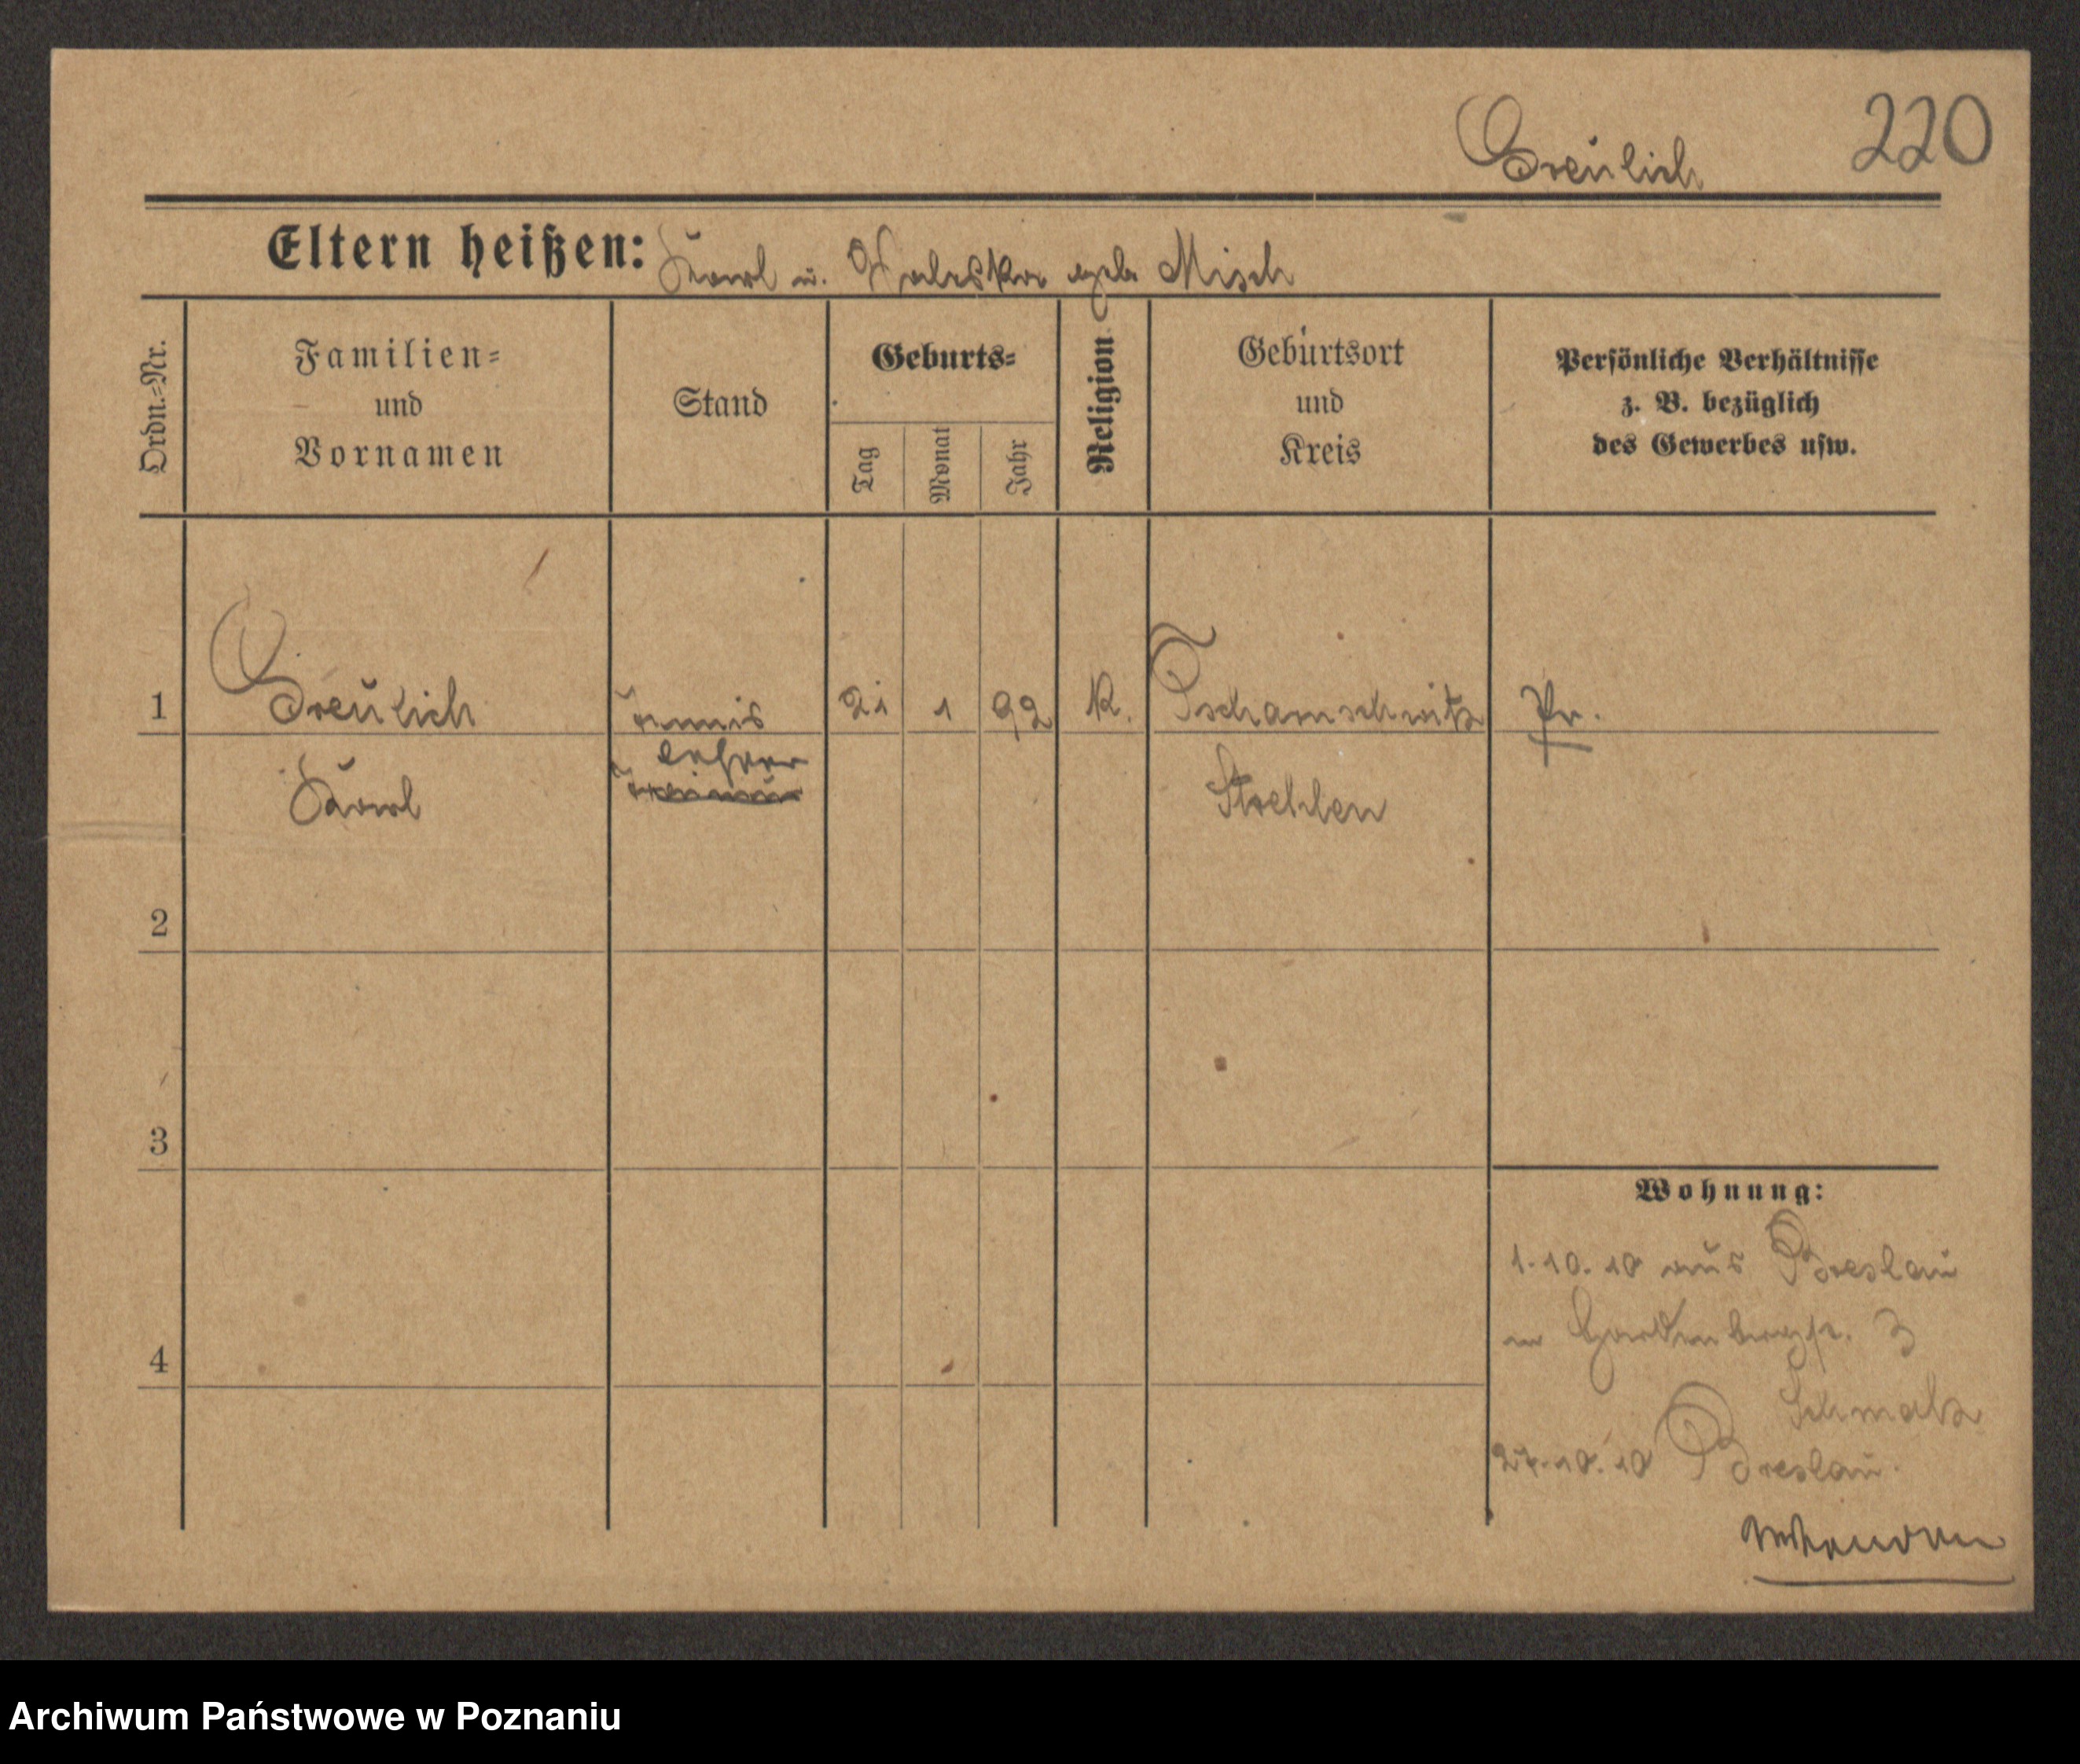 Greulich 220
Eltern heißen: Karl u. Valeska geb Misch
Ordn.=Nr.
Familien=
und
Vornamen
Stand
Geburts=
Tag
Monat
Jahr
Religion
Geburtsort
und
Kreis
Persönliche Verhältnisse
z. B. bezüglich
des Gewerbes usw.
1 Greulich Tennis 21 1 92 K. Tschamschwitz Pr.
lehrer
Karl Strehlen
2
3
Wohnung:
1.10.10 aus Breslau
Hardenbergstr. 3
4
Schmalz
10.10 Breslau.
Archiwum Państwowe w Poznaniu